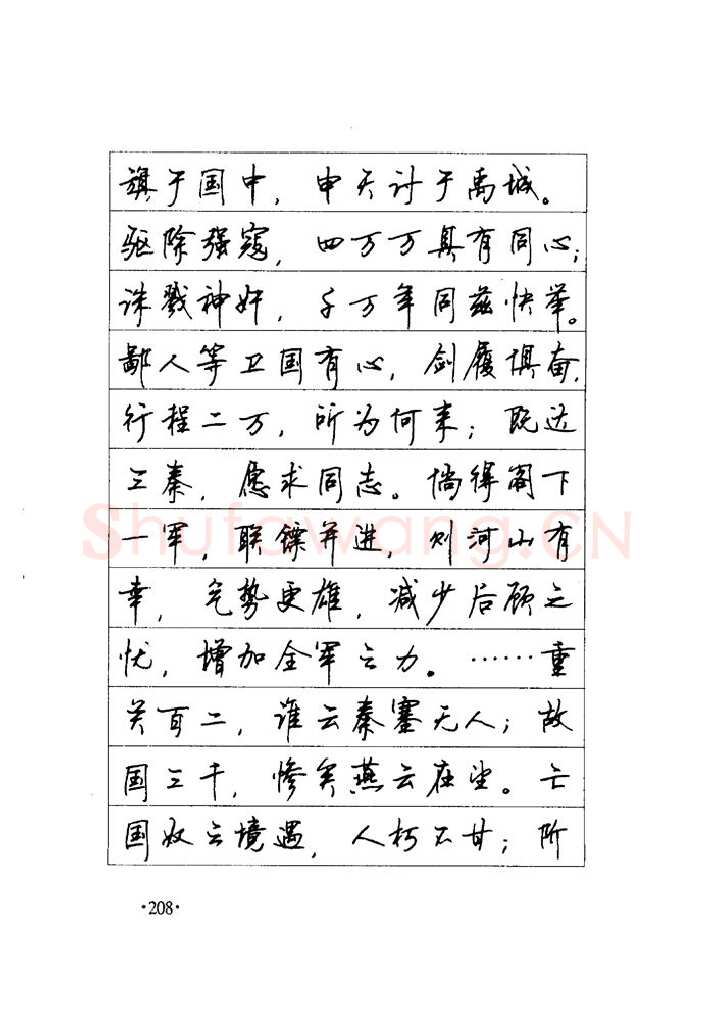 旗于国中，申天讨于禹城。
驱除强寇，四万万具有同心；
诛戮神奸，千万年同兹快举。
鄙人等卫国有心，剑履俱奋，
行程二万，所为何来；既达
三秦，愿求同志。倘得阁下
一军。联镳并进，则河山有
幸，气势更雄，减少后顾之
忧，增加全军之力。……重
关百二，谁云秦塞无人；故
国三千，惨矣燕云在望。亡
国奴之境遇，人朽不甘；阶
·208·
Shufawang.CN